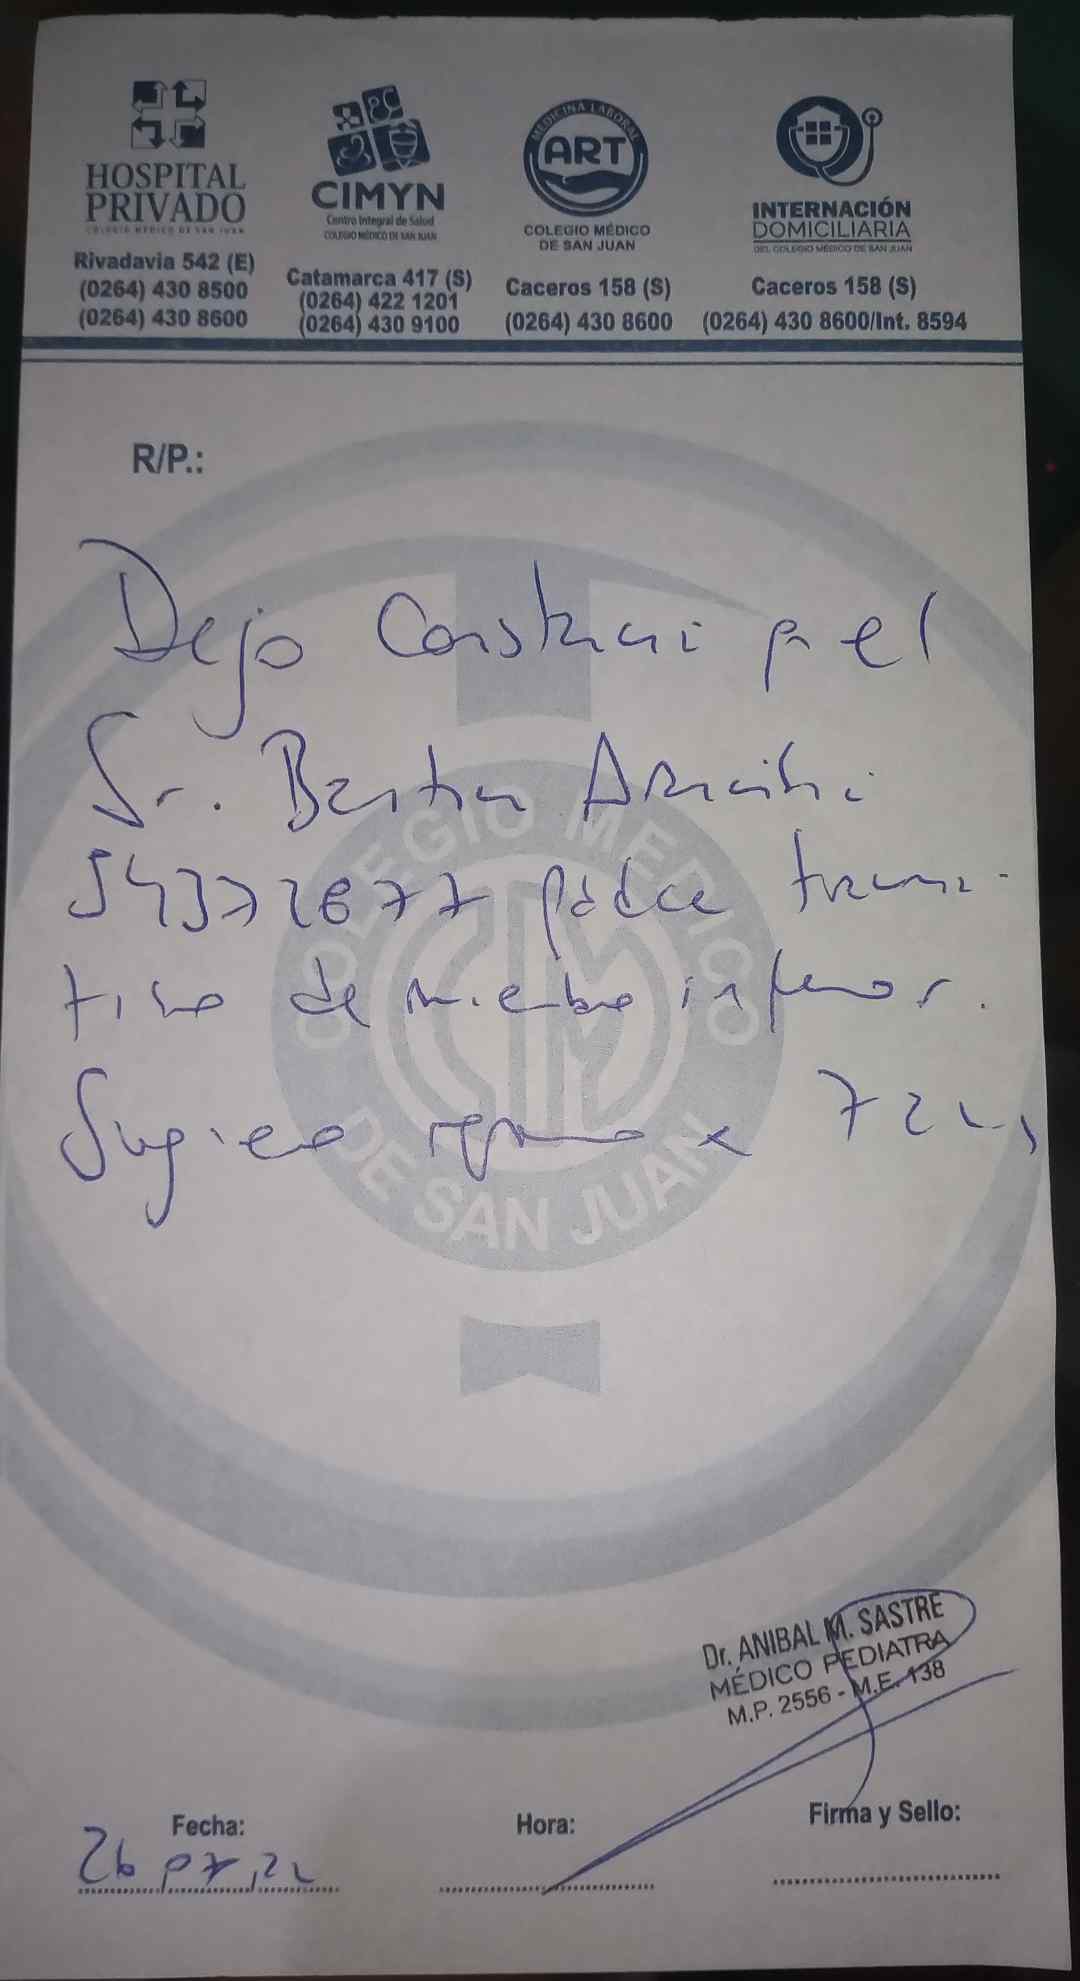 HOSPITAL
PRIVADO
COLEGIO MÉDICO DE SAN JUAN
Rivadavia 542 (E)
(0264) 430 8500
(0264) 430 8600
CIMYN
Centro Integral de Salud
COLEGIO MÉDICO DE SAN JUAN
Catamarca 417 (S)
(0264) 422 1201
(0264) 430 9100
MEDICINA LABORAL
ART
COLEGIO MÉDICO
DE SAN JUAN
Caceros 158 (S)
(0264) 430 8600
INTERNACIÓN
DOMICILIARIA
DEL COLEGIO MÉDICO DE SAN JUAN
Caceros 158 (S)
(0264) 430 8600/Int. 8594
R/P.:
Dejo Constancia q el
Sr.
padece trauma-
tismo de miembro inferior.
Sugiero reposo x 72 hs
COLEGIO MEDICO
DE SAN JUAN
Dr. ANIBAL M. SASTRE
MÉDICO PEDIATRA
M.P. 2556 - M.E. 138
Fecha:
Hora:
Firma y Sello:
26